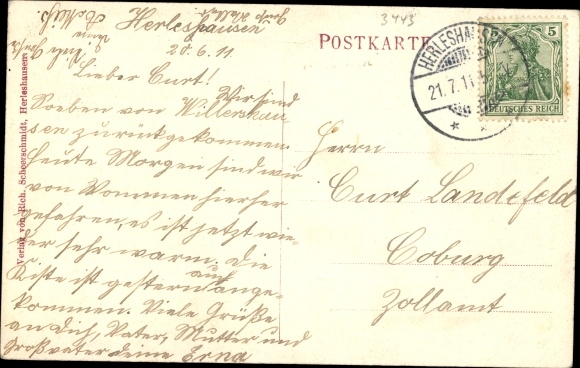 3443
Herleshausen
20.6.11
Lieber Curt!
Wir sind
Soeben von Willershau
sen zurückgekommen.
heute Morgen sind wir
von Wommen hierher
gefahren, es ist jetzt wie-
der sehr warm. Die
Kiste ist gestern auch ange-
kommen. Viele Grüße
an Dich, Vater, Mutter und
Großvater deine Erna
POSTKARTE
HERLESHAUSEN
21.7.11
5
DEUTSCHES REICH
Herrn
Curt Landefeld
Coburg
Zollamt
Verlag von Rich. Scheerschmidt, Herleshausen